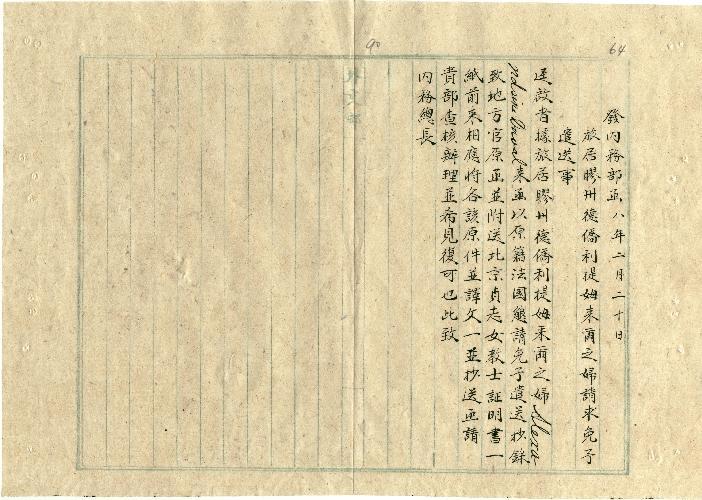 90
64
發內務部函 八年二月二十日
旅居膠州德僑利提姆來爾之婦請求免予
遣送事
逕啟者據旅居膠州德僑利提姆來爾之婦 Alexa
來函以原籍法國懇請免予遣送抄錄
致地方官原函並附送北京貞志女教士証明書一
紙前來相應將各該原件並譯文一並抄送函請
貴部查核辦理並希見復可也此致
內務總長
外交部